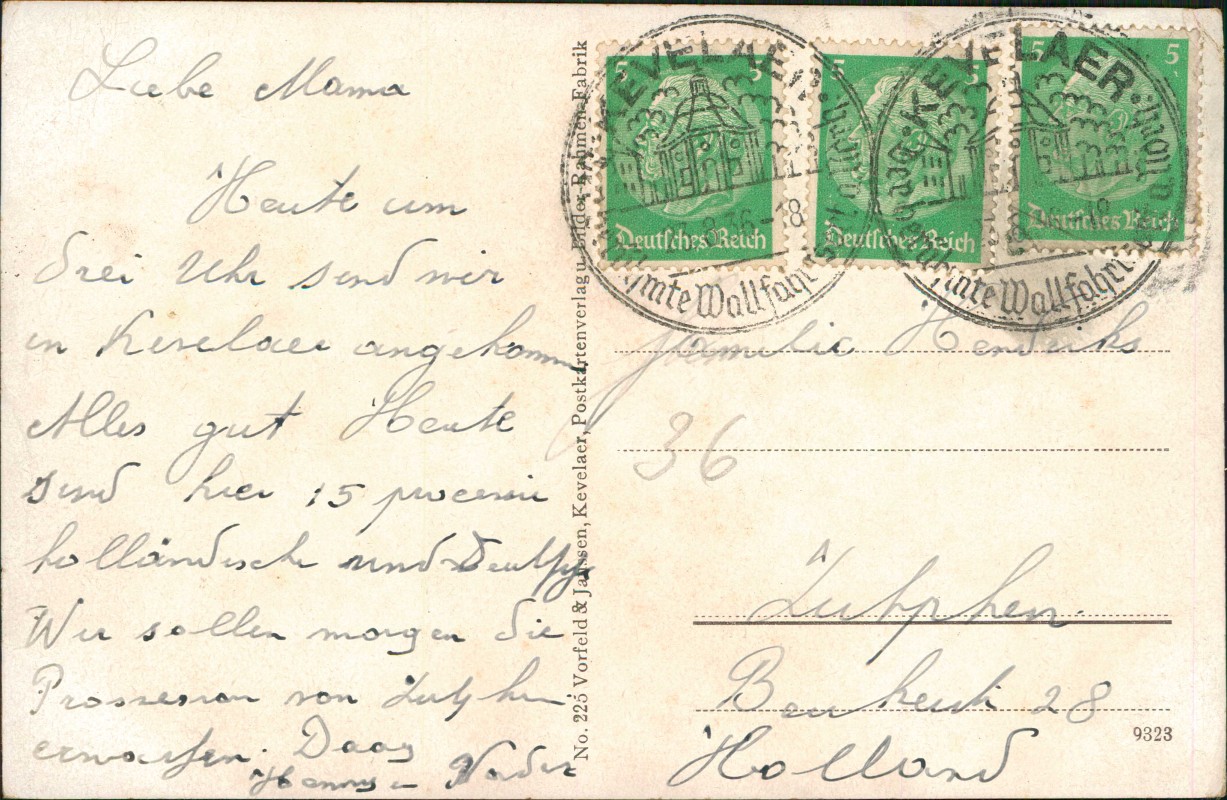 Liebe Mama
Heute um
drei Uhr send wir
in Kevelaer angekomm
Alles gut Heute
send hier 15 procensie
holländische und Deutsche
Wir sollen morgen die
Prossesion von Zutphen
erwarten. Daag
Henny en Vader
No. 225 Vorfeld & Janssen, Kevelaer, Postkartenverlag u. Bilder-Rahmen-Fabrik
5 5
Deutsches Reich
5 5
Deutsches Reich
5 5
Deutsches Reich
KEVELAER
8.36-18
Berühmte Wallfahrt
KEVELAER
Berühmte Wallfahrt
Familie Hendriks
36
Zutphen.
Beukerstr 28
Holland
9323